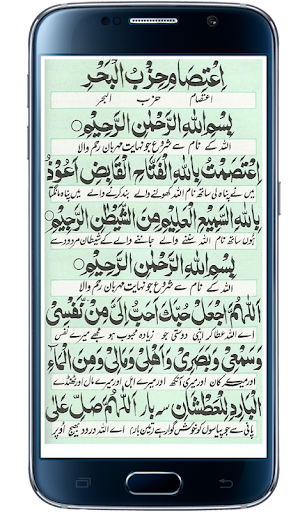 اِعْتِصَامِ حِزْبُ الْبَحْر
اعتصام حزب البحر
بِسْمِ اللهِ الرَّحْمٰنِ الرَّحِيْمِ
اللہ کے نام سے شروع جو نہایت مہربان رحم والا
اِعْتَصَمْتُ بِاللهِ الْفَتَّاحِ الْقَابِضِ اَعُوْذُ
میں نے پناہ لی ساتھ نام اللہ کھولنے والے بند کرنے والے کے میں پناہ مانگتا
بِاللهِ السَّمِيْعِ الْعَلِيْمِ مِنَ الشَّيْطٰنِ الرَّجِيْمِ
ہوں ساتھ نام اللہ سننے والے جاننے والے کے شیطان مردود سے
بِسْمِ اللهِ الرَّحْمٰنِ الرَّحِيْمِ
اللہ کے نام سے شروع جو نہایت مہربان رحم والا
اَللّٰهُمَّ اجْعَلْ حُبَّكَ اَحَبُّ اِلَىَّ مِنْ نَّفْسِىْ
اے اللہ عطا کر اپنی دوستی جو زیادہ محبوب ہو مجھے میرے نفس
وَسَمْعِىْ وَبَصَرِىْ وَاَهْلِىْ وَمَالِىْ وَمِنَ الْمَاءِ
اور میرے کان اور میری آنکھ اور میرے اہل اور میرے مال اور ٹھنڈے
الْبَارِدِ لِلْعَطْشَانِ سه بار اَللّٰهُمَّ صَلِّ عَلٰى
پانی سے جو پیاسوں کو خوش گوار ہے (تین بار) اے اللہ درود بھیج اوپر